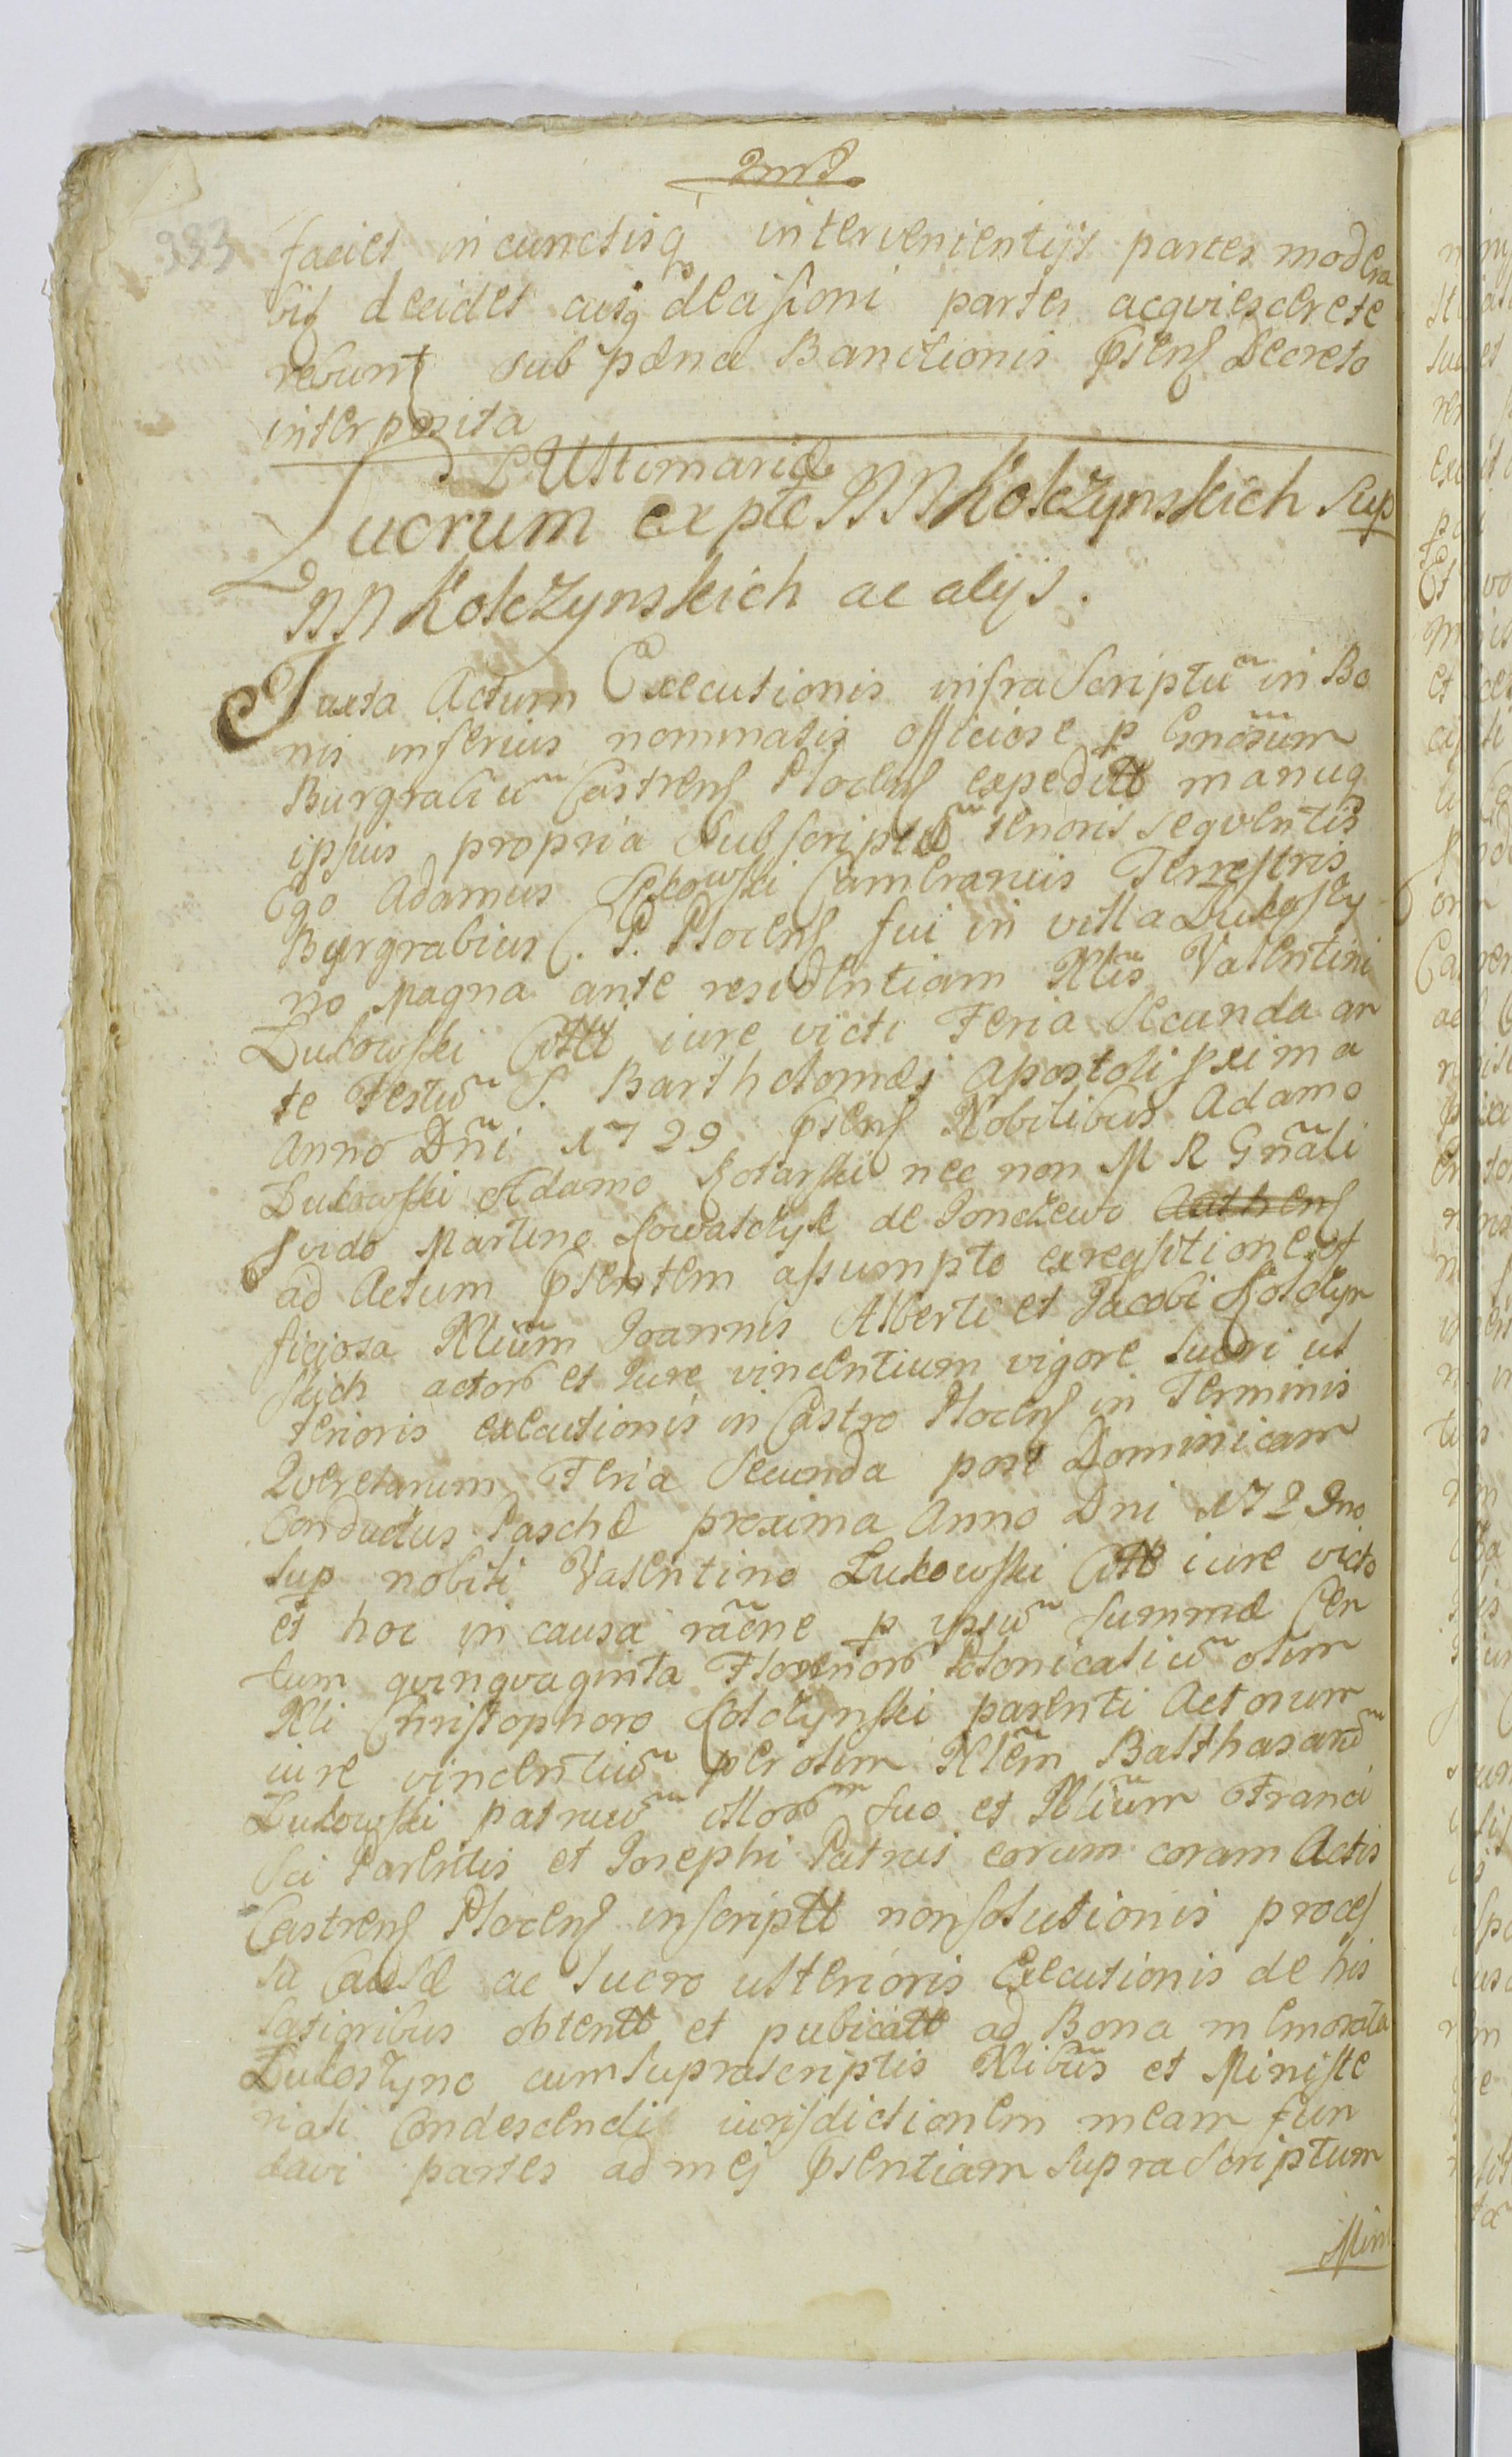 333
faciet in cunctisq intervenientijs partes modera
bit decidet cuiq decisioni partes acquiescere te
nebunt sub pæna Banitionis psens Decreto
interposita
Ultimariæ
Lucrum ex pte NN Kołczynskich Sup
NN Kołczynskich ac alijs.
Juxta Actum Executionis infra Scriptũ in Bo
nis inferius nominatis officiose p Gnosum
Burgrabiũ Castrens Plocens expedit manuq
ipsius propria Subscriptũ tenoris seqventis
Ego Adamus Camerarius Terrestris
Burgrabius C. P. Plocens fui in villa Lukoszy
no Magna ante residentiam Nlis Valentini
Lukowski Citti iure victi Feria Secunda an
te Festũ S. Bartholomæi Apostoli pxima
Anno Dñi 1729 psens Nobilibus Adamo
Lukowski Adamo Kotarski nec non M R Gñali
pvido Martino Kowalczyk de Gonczewo
ad Actum psentem assumpto ex reqsitione of
ficiosa Nlium Joannis Alberti et Jacobi Kołczyn
skich actorũ et Jure vincentium vigore Lucri ul
terioris executionis in Castro Plocens in Terminis
Qverelarum Feria Secunda post Dominicam
Conductus Paschæ proxima Anno Dni 1729no
Sup nobili Valentino Lukowski Citto iure victo
et hoc in causa rãene p ipsũ Summæ Cen
tum qvinqvaginta Florenorũ Polonicaliũ olim
Nli Christophoro Kołczynski parenti Actorum
iure vincentiũ per olim Nlem Balthasarũ
Lukowski patruũ suo et Nlium Franci
sci Parentis et Josephi Patrui eorum coram Actis
Castrens Plocens inscript non solutionis proces
sa Causæ ac Lucro ulterioris Executionis de his
lationibus obtent et publicatt ad Bona memorata
Lukoszyno cum suprascriptis Nlibus et Ministe
riali Condescendi iurisdictionem meam fun
davi partes ad mej psentiam supra Scriptum
Min